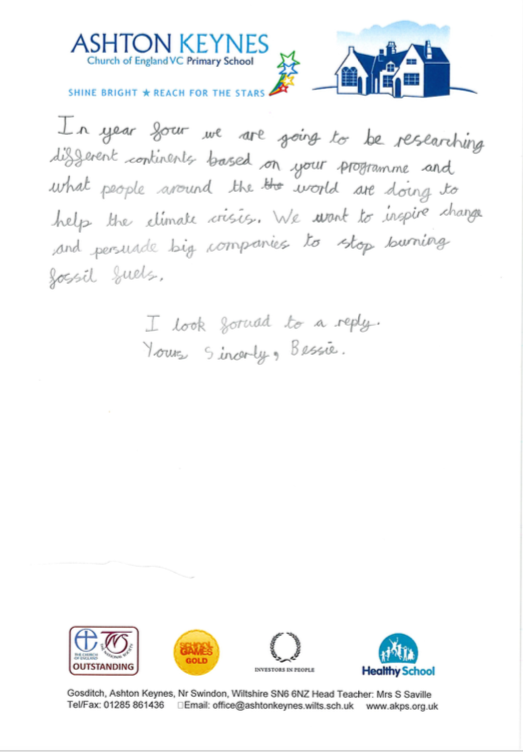 ASHTON KEYNES
Church of England VC Primary School
SHINE BRIGHT ★ REACH FOR THE STARS
In year four we are going to be researching
different continents based on your programme and
what people around the the world are doing to
help the climate crisis. We want to inspire change
and persuade big companies to stop burning
fossil fuels.
I look forwad to a reply.
Yours Sincerly, Bessie.
THE CHURCH
OF ENGLAND
THE NATIONAL SOCIETY
OUTSTANDING
SCHOOL
GAMES
GOLD
INVESTORS IN PEOPLE
Healthy School
Gosditch, Ashton Keynes, Nr Swindon, Wiltshire SN6 6NZ Head Teacher: Mrs S Saville
Tel/Fax: 01285 861436 □Email: office@ashtonkeynes.wilts.sch.uk www.akps.org.uk